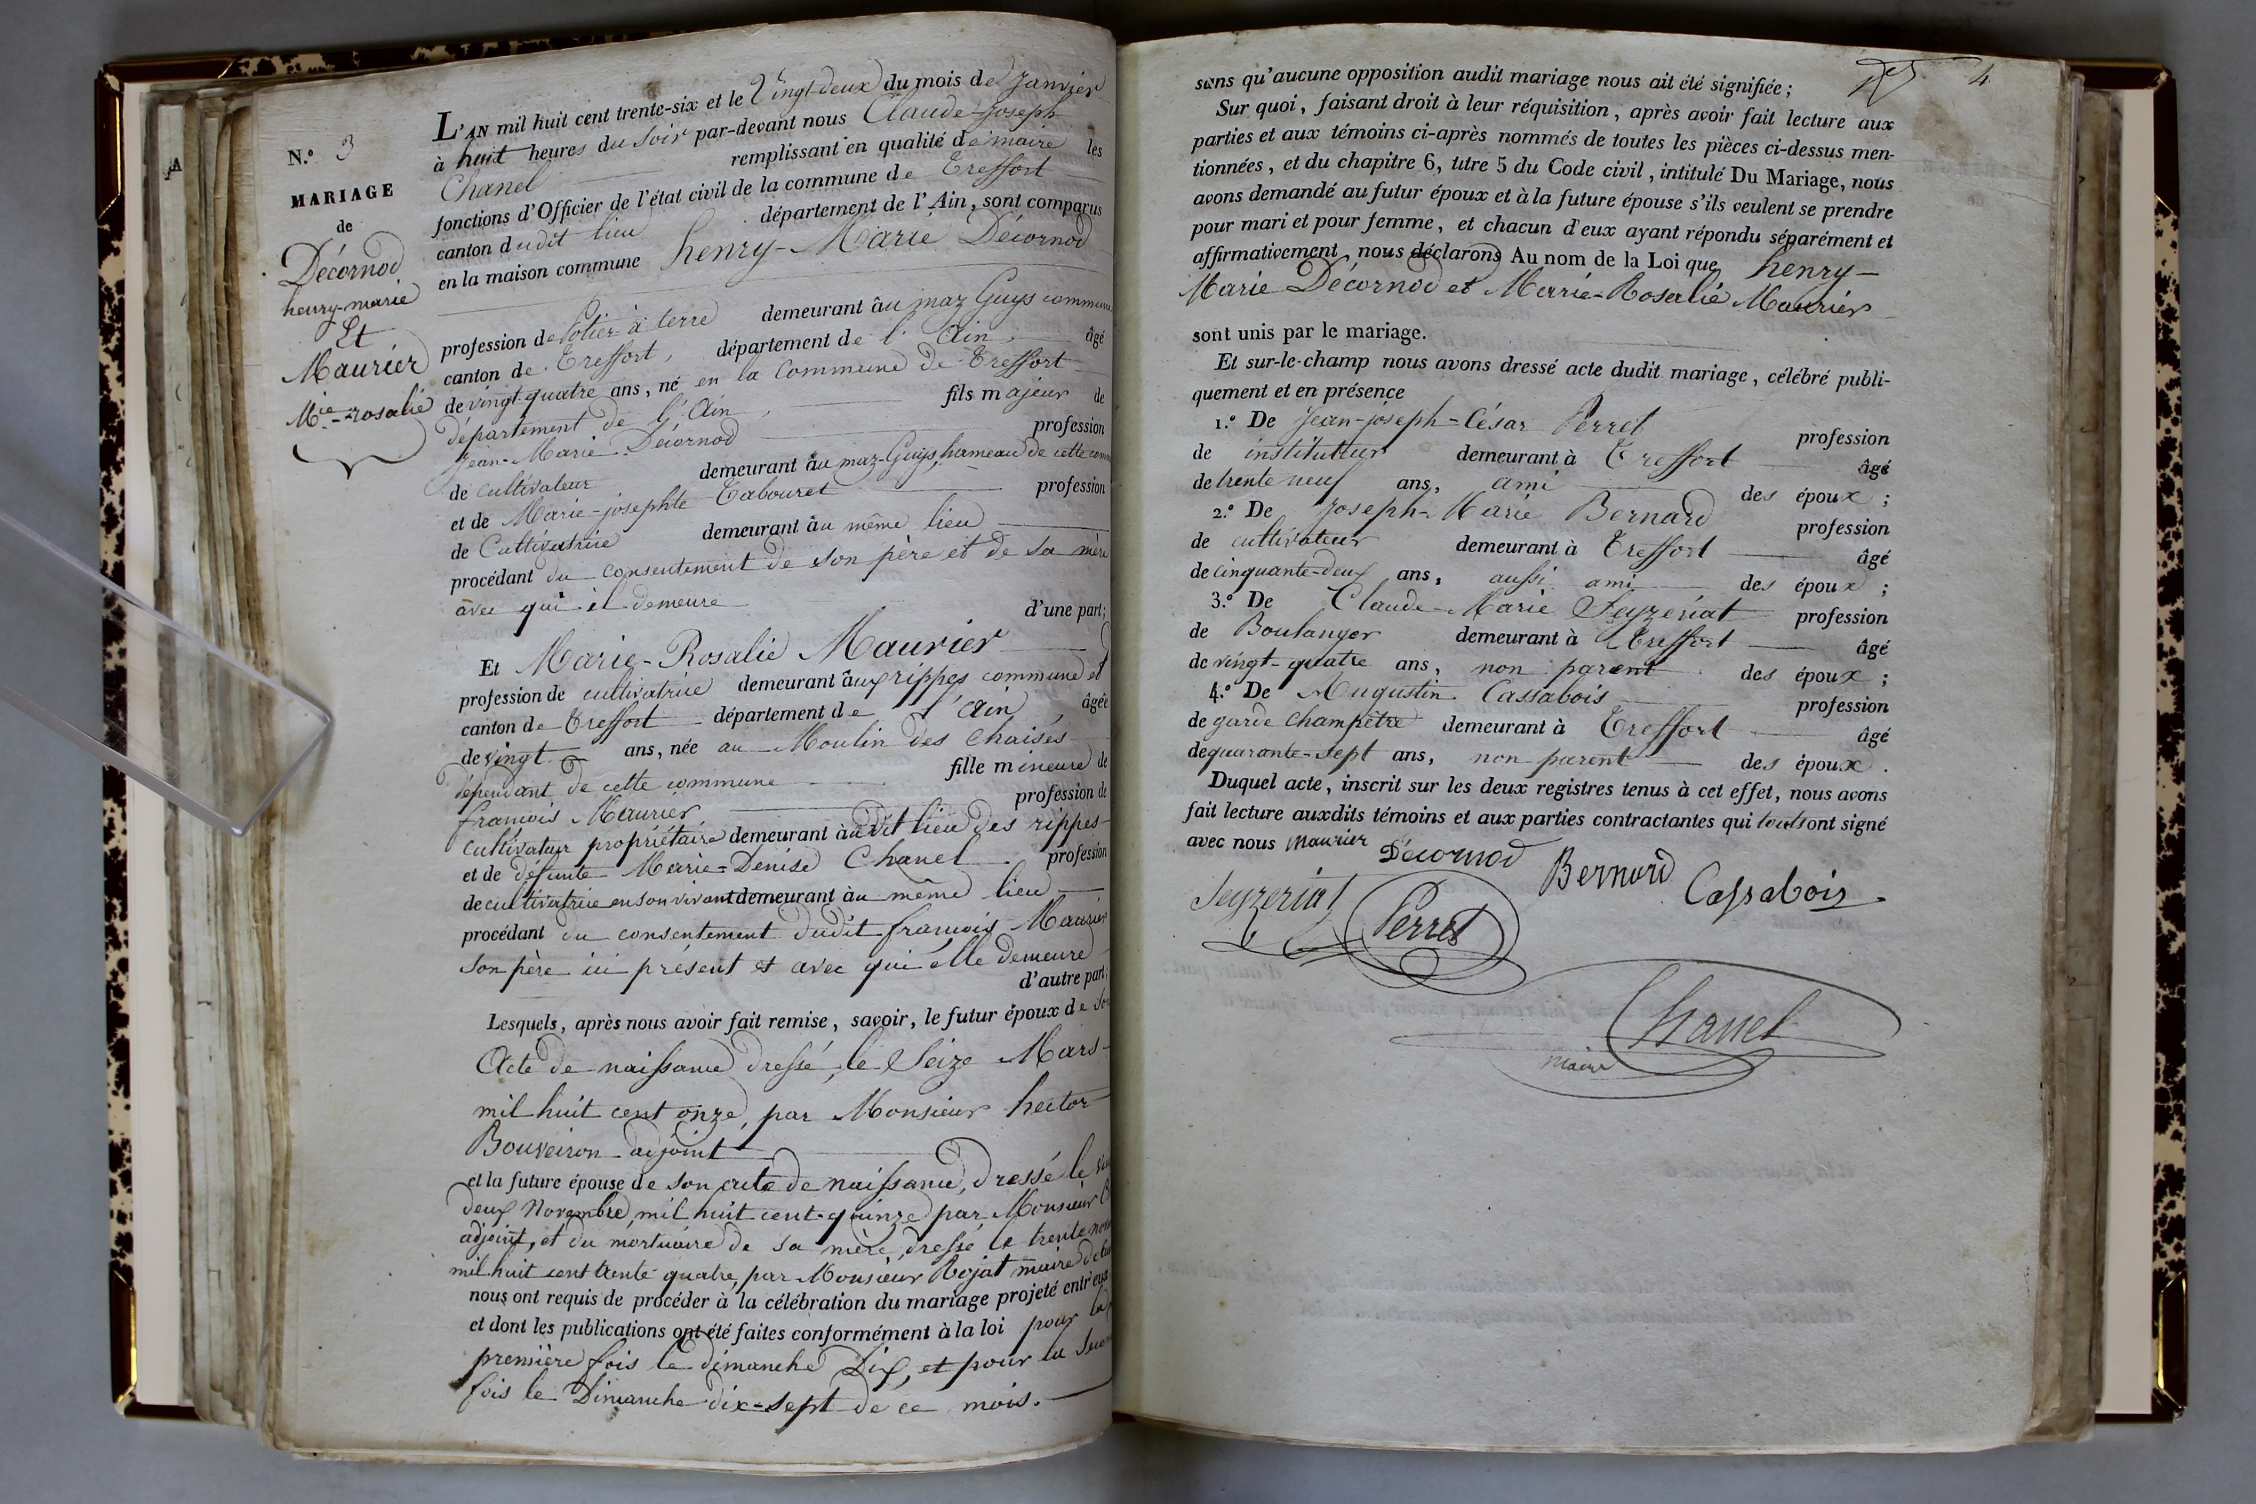 N.° 3
MARIAGE
de
Décornod
henry-marie
Et
Maurier
Mie-rosalie
L'AN mil huit cent trente-six et le Vingt-deux du mois de Janvier
à huit heures du soir par-devant nous Claude-Joseph
Chanel remplissant en qualité de maire les
fonctions d'Officier de l'état civil de la commune de Treffort
canton dudit lieu département de l'Ain, sont comparus
en la maison commune henry-Marie Décornod
profession de Potier à terre demeurant au maz Guys commune
canton de Treffort, département de l'Ain, âgé
de vingt-quatre ans, né en la Commune de Treffort
département de l'Ain, fils majeur de
Jean-Marie Décornod profession
de cultivateur demeurant au maz-Guys, hameau de cette com
et de Marie-josephte Tabouret profession
de Cultivatrice demeurant au même lieu
procédant du consentement de son père et de sa mère
avec qui il demeure d'une part;
Et Marie-Rosalie Maurier
profession de cultivatrice demeurant aux rippes commune et
canton de Treffort département de l'Ain âgée
de vingt ans, née au Moulin des Chaises
dépendant de cette commune fille mineure de
francois Maurier profession de
cultivateur propriétaire demeurant àudit lieu des rippes
et de défunte Marie-Denise Chanel profession
de cultivatrice en son vivant demeurant àu même lieu
procédant du consentement dudit francois Maurier
son père ici présent et avec qui elle demeure
d'autre part;
Lesquels, après nous avoir fait remise, savoir, le futur époux de son
Acte de naissance dressé, le Seize Mars
mil huit cent onze, par Monsieur hector
Bouveiron adjoint
et la future épouse de son acte de naissance, dressé le
deux Novembre, mil huit cent quinze par Monsieur
adjoint, et du mortuaire de sa mère, dressé le trente
mil huit cent trente quatre, par Monsieur Rojat maire
nous ont requis de procéder à la célébration du mariage projeté entr'eux
et dont les publications ont été faites conformément à la loi pour la
première fois le dimanche Dix, et pour la Secon
fois le Dimanche dix-sept de ce mois.
4
sans qu'aucune opposition audit mariage nous ait été signifiée;
Sur quoi, faisant droit à leur réquisition, après avoir fait lecture aux
parties et aux témoins ci-après nommés de toutes les pièces ci-dessus men-
tionnées, et du chapitre 6, titre 5 du Code civil, intitulé Du Mariage, nous
avons demandé au futur époux et à la future épouse s'ils veulent se prendre
pour mari et pour femme, et chacun d'eux ayant répondu séparément et
affirmativement, nous déclarons Au nom de la Loi que henry-
Marie Décornod et Marie-Rosalie Maurier
sont unis par le mariage.
Et sur-le-champ nous avons dressé acte dudit mariage, célébré publi-
quement et en présence
1.° De Jean-joseph-César Perret profession
de instituteur demeurant à Treffort âgé
de trente neuf ans, ami des époux;
2.° De Joseph-Marie Bernard profession
de cultivateur demeurant à Treffort âgé
de cinquante-deux ans, aussi ami des époux;
3.° De Claude-Marie Seyzeriat profession
de Boulanger demeurant à Treffort âgé
de vingt-quatre ans, non parent des époux;
4.° De Augustin Cassabois profession
de garde champêtre demeurant à Treffort âgé
de quarante-sept ans, non parent des époux.
Duquel acte, inscrit sur les deux registres tenus à cet effet, nous avons
fait lecture auxdits témoins et aux parties contractantes qui tous ont signé
avec nous Maurier Décornod
Bernard
Cassabois
Seyzeriat
Perret
Chanel
maire